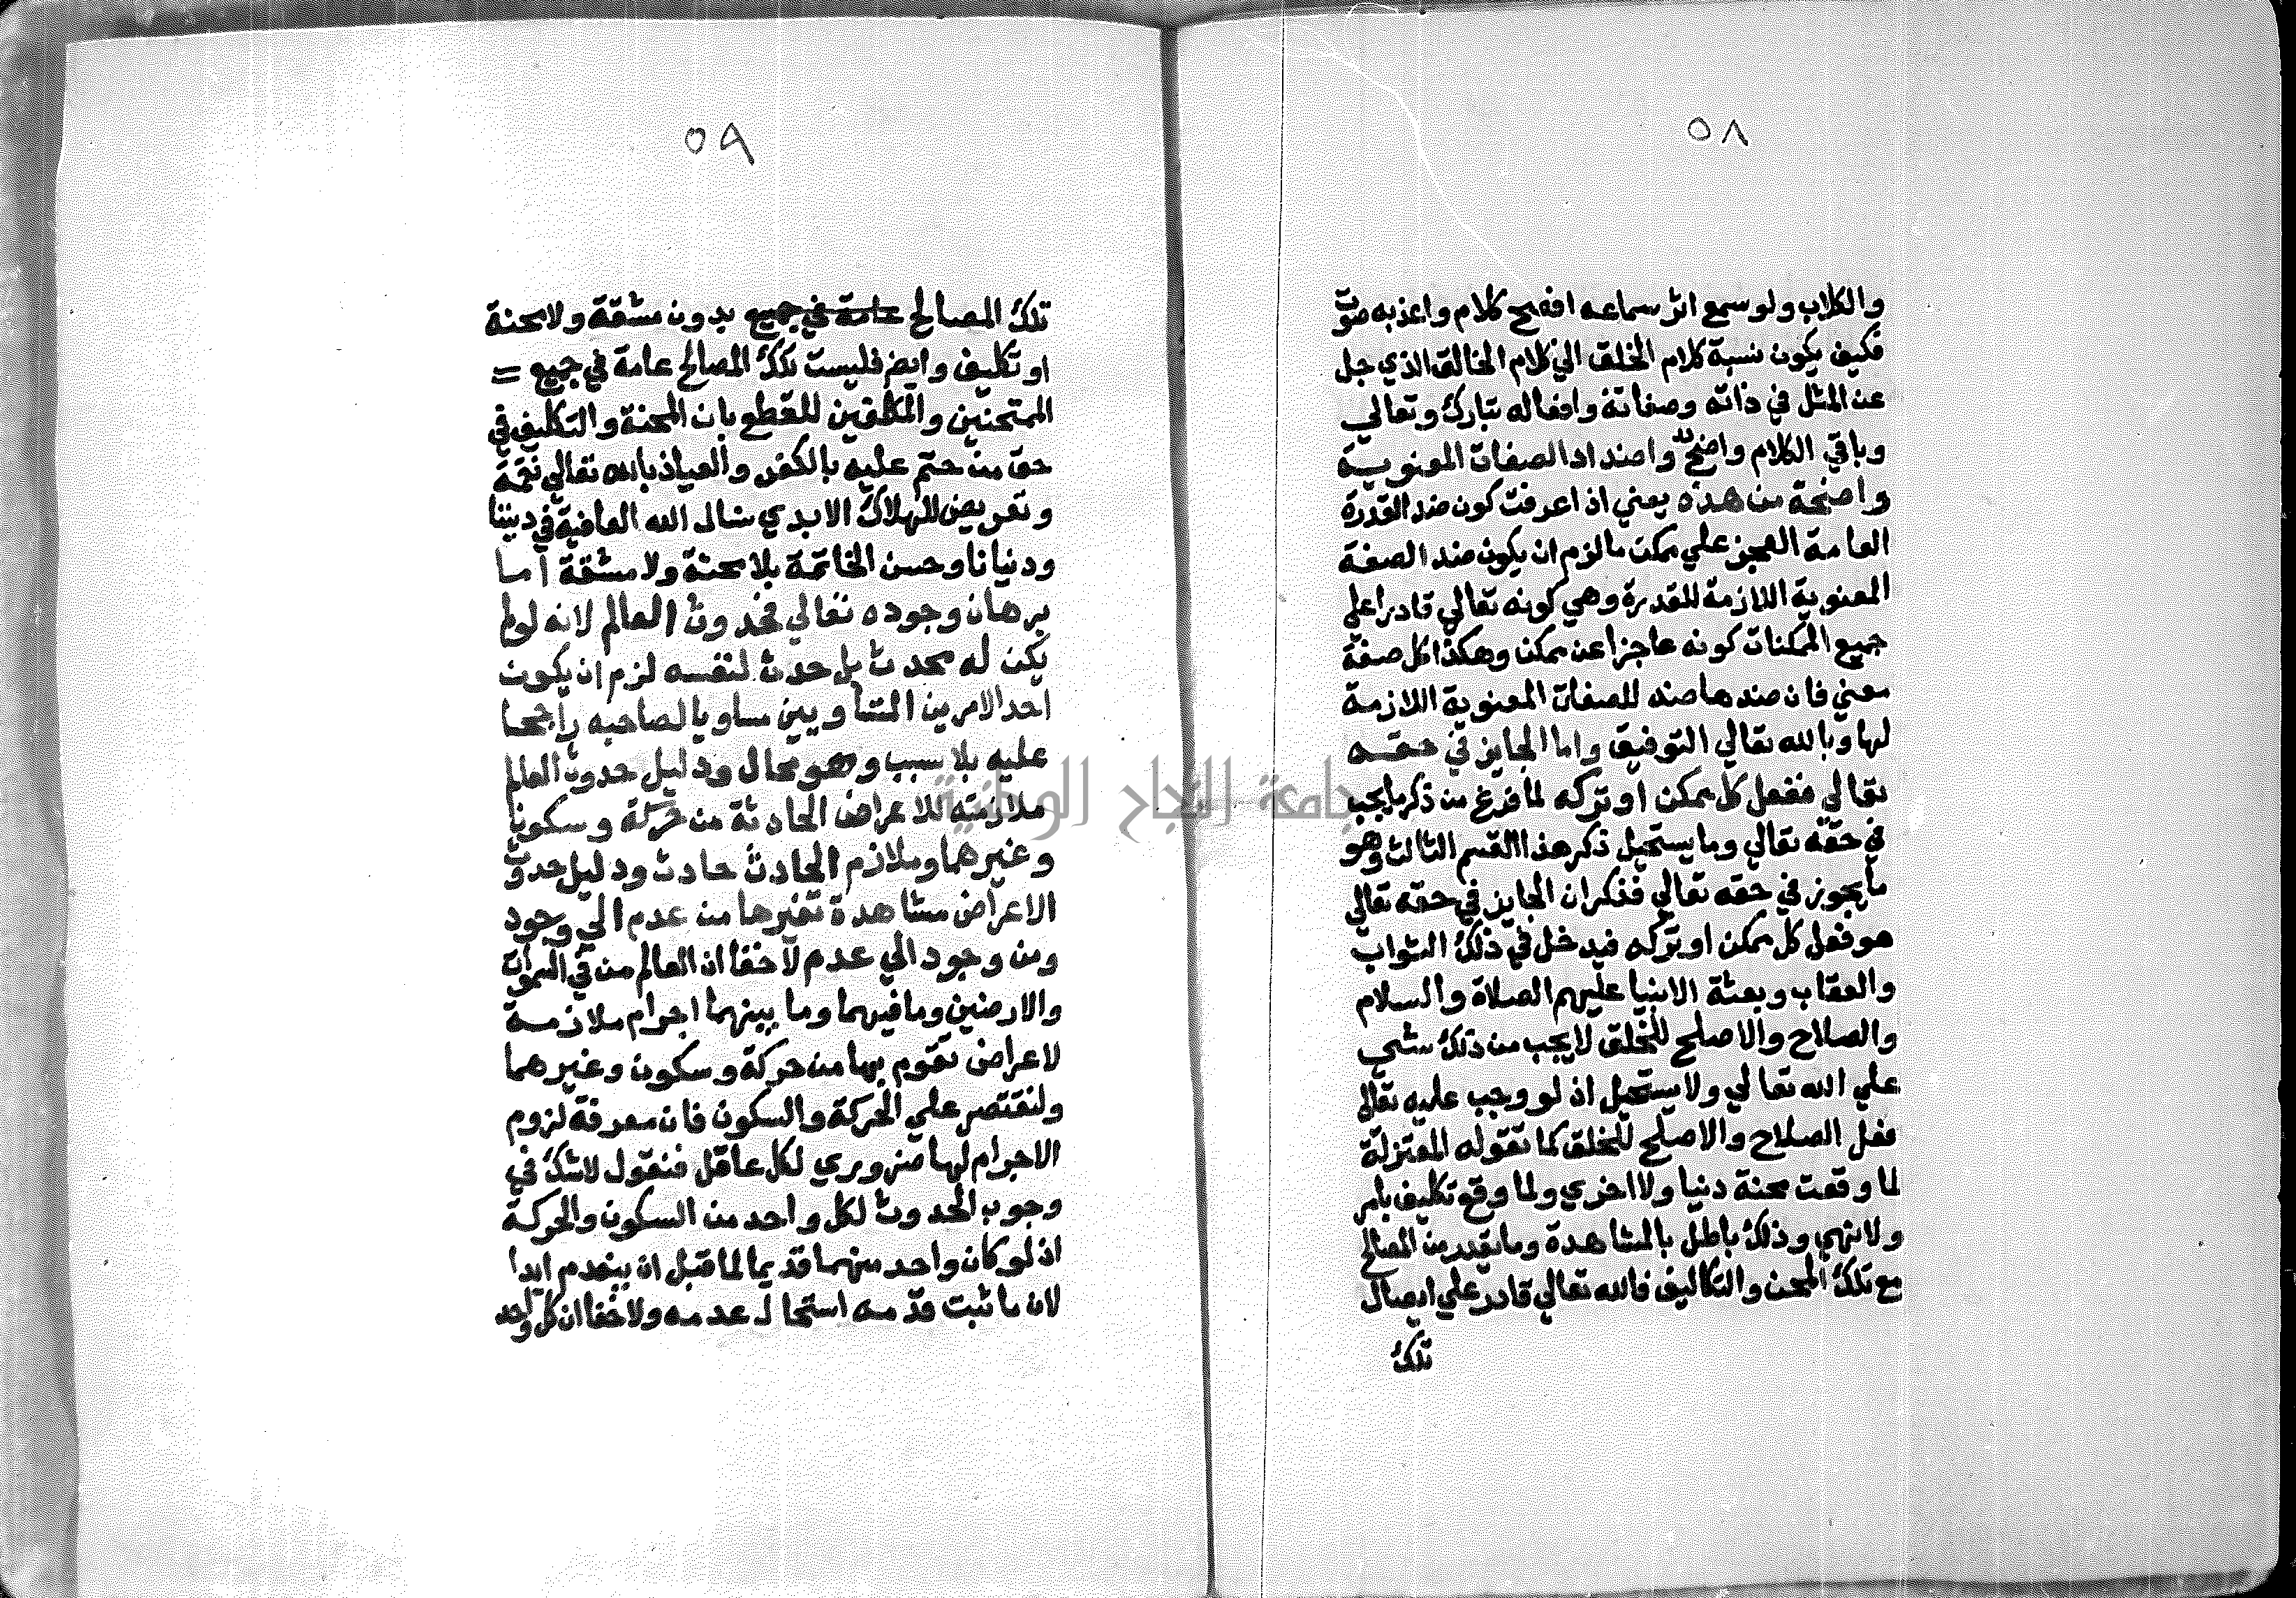 ٥٨
والكلاب ولو سمع اثر سماعه افصح كلام واعذبه صوت
فكيف يكون نسبة كلام الخلق الي كلام الخالق الذي جل
عن المثل في ذاته وصفاته وافعاله تبارك وتعالي
وباقي الكلام واضح واضداد الصفات المعنوية
واضحة من هذه يعني اذا عرفت كون ضد القدرة
العامة العجز علي ممكن ما لزم ان يكون ضد الصفة
المعنوية اللازمة للقدرة وهي كونه تعالي قادرا علي
جميع الممكنات كونه عاجزا عن ممكن وهكذا كل صفة
معني فان ضدها ضد للصفات المعنوية اللازمة
لها وبالله تعالي التوفيق واما الجايز في حقه
تعالي ففعل كل ممكن او تركه لما فرغ من ذكر ما يجب
في حقه تعالي وما يستحيل ذكر هذا القسم الثالث وهو
ما يجوز في حقه تعالي فذكر ان الجايز في حقه تعالي
هو فعل كل ممكن او تركه فيدخل في ذلك الثواب
والعقاب وبعثة الانبيا عليهم الصلاة والسلام
والصلاح والاصلح للخلق لا يجب من ذلك شي
علي الله تعالي ولا يستحيل اذ لو وجب عليه تعالي
فعل الصلاح والاصلح للخلق كما تقوله المعتزلة
لما وقعت محنة دنيا ولا اخري ولما وقع تكليف بامر
ولا نهي وذلك باطل بالمشاهدة وما يقدر من المصالح
مع تلك المحن والتكاليف فالله تعالي قادر علي ايصال
تلك
٥٩
تلك المصالح عامة في جميع بدون مشقة ولا محنة
او تكليف وايض فليست تلك المصالح عامة في جميع =
الممتحنين والمكلفين للقطع بان المحنة والتكليف في
حق من حتم عليه بالكفر والعياذ بالله تعالي نقمة
وتعريض للهلاك الابدي نسال الله العافية في ديننا
ودنيانا وحسن الخاتمة بلا محنة ولا مشقة اما
برهان وجوده تعالي فحدوث العالم لانه لو لم
يكن له محدث بل حدث لنفسه لزم ان يكون
احد الامرين المتساويين مساويا لصاحبه راجحا
عليه بلا سبب وهو محال ودليل حدوث العالم
ملازمته للاعراض الحادثة من حركة وسكون
وغيرهما وملازم الحادث حادث ودليل حدوث
الاعراض مشاهدة تغيرها من عدم الي وجود
ومن وجود الي عدم لا خفا ان العالم من السموات
والارضين وما فيهما وما بينهما اجرام ملازمة
لاعراض تقوم بها من حركة وسكون وغيرهما
ولنقتصر علي الحركة والسكون فان معرفة لزوم
الاجرام لها ضروري لكل عاقل فنقول لا شك في
وجوب الحدوث لكل واحد من السكون والحركة
اذ لو كان واحد منهما قديما لما قبل ان ينعدم ابدا
لان ما ثبت قدمه استحال عدمه ولا خفا ان كل واحد
جامعة النجاح الوطنية